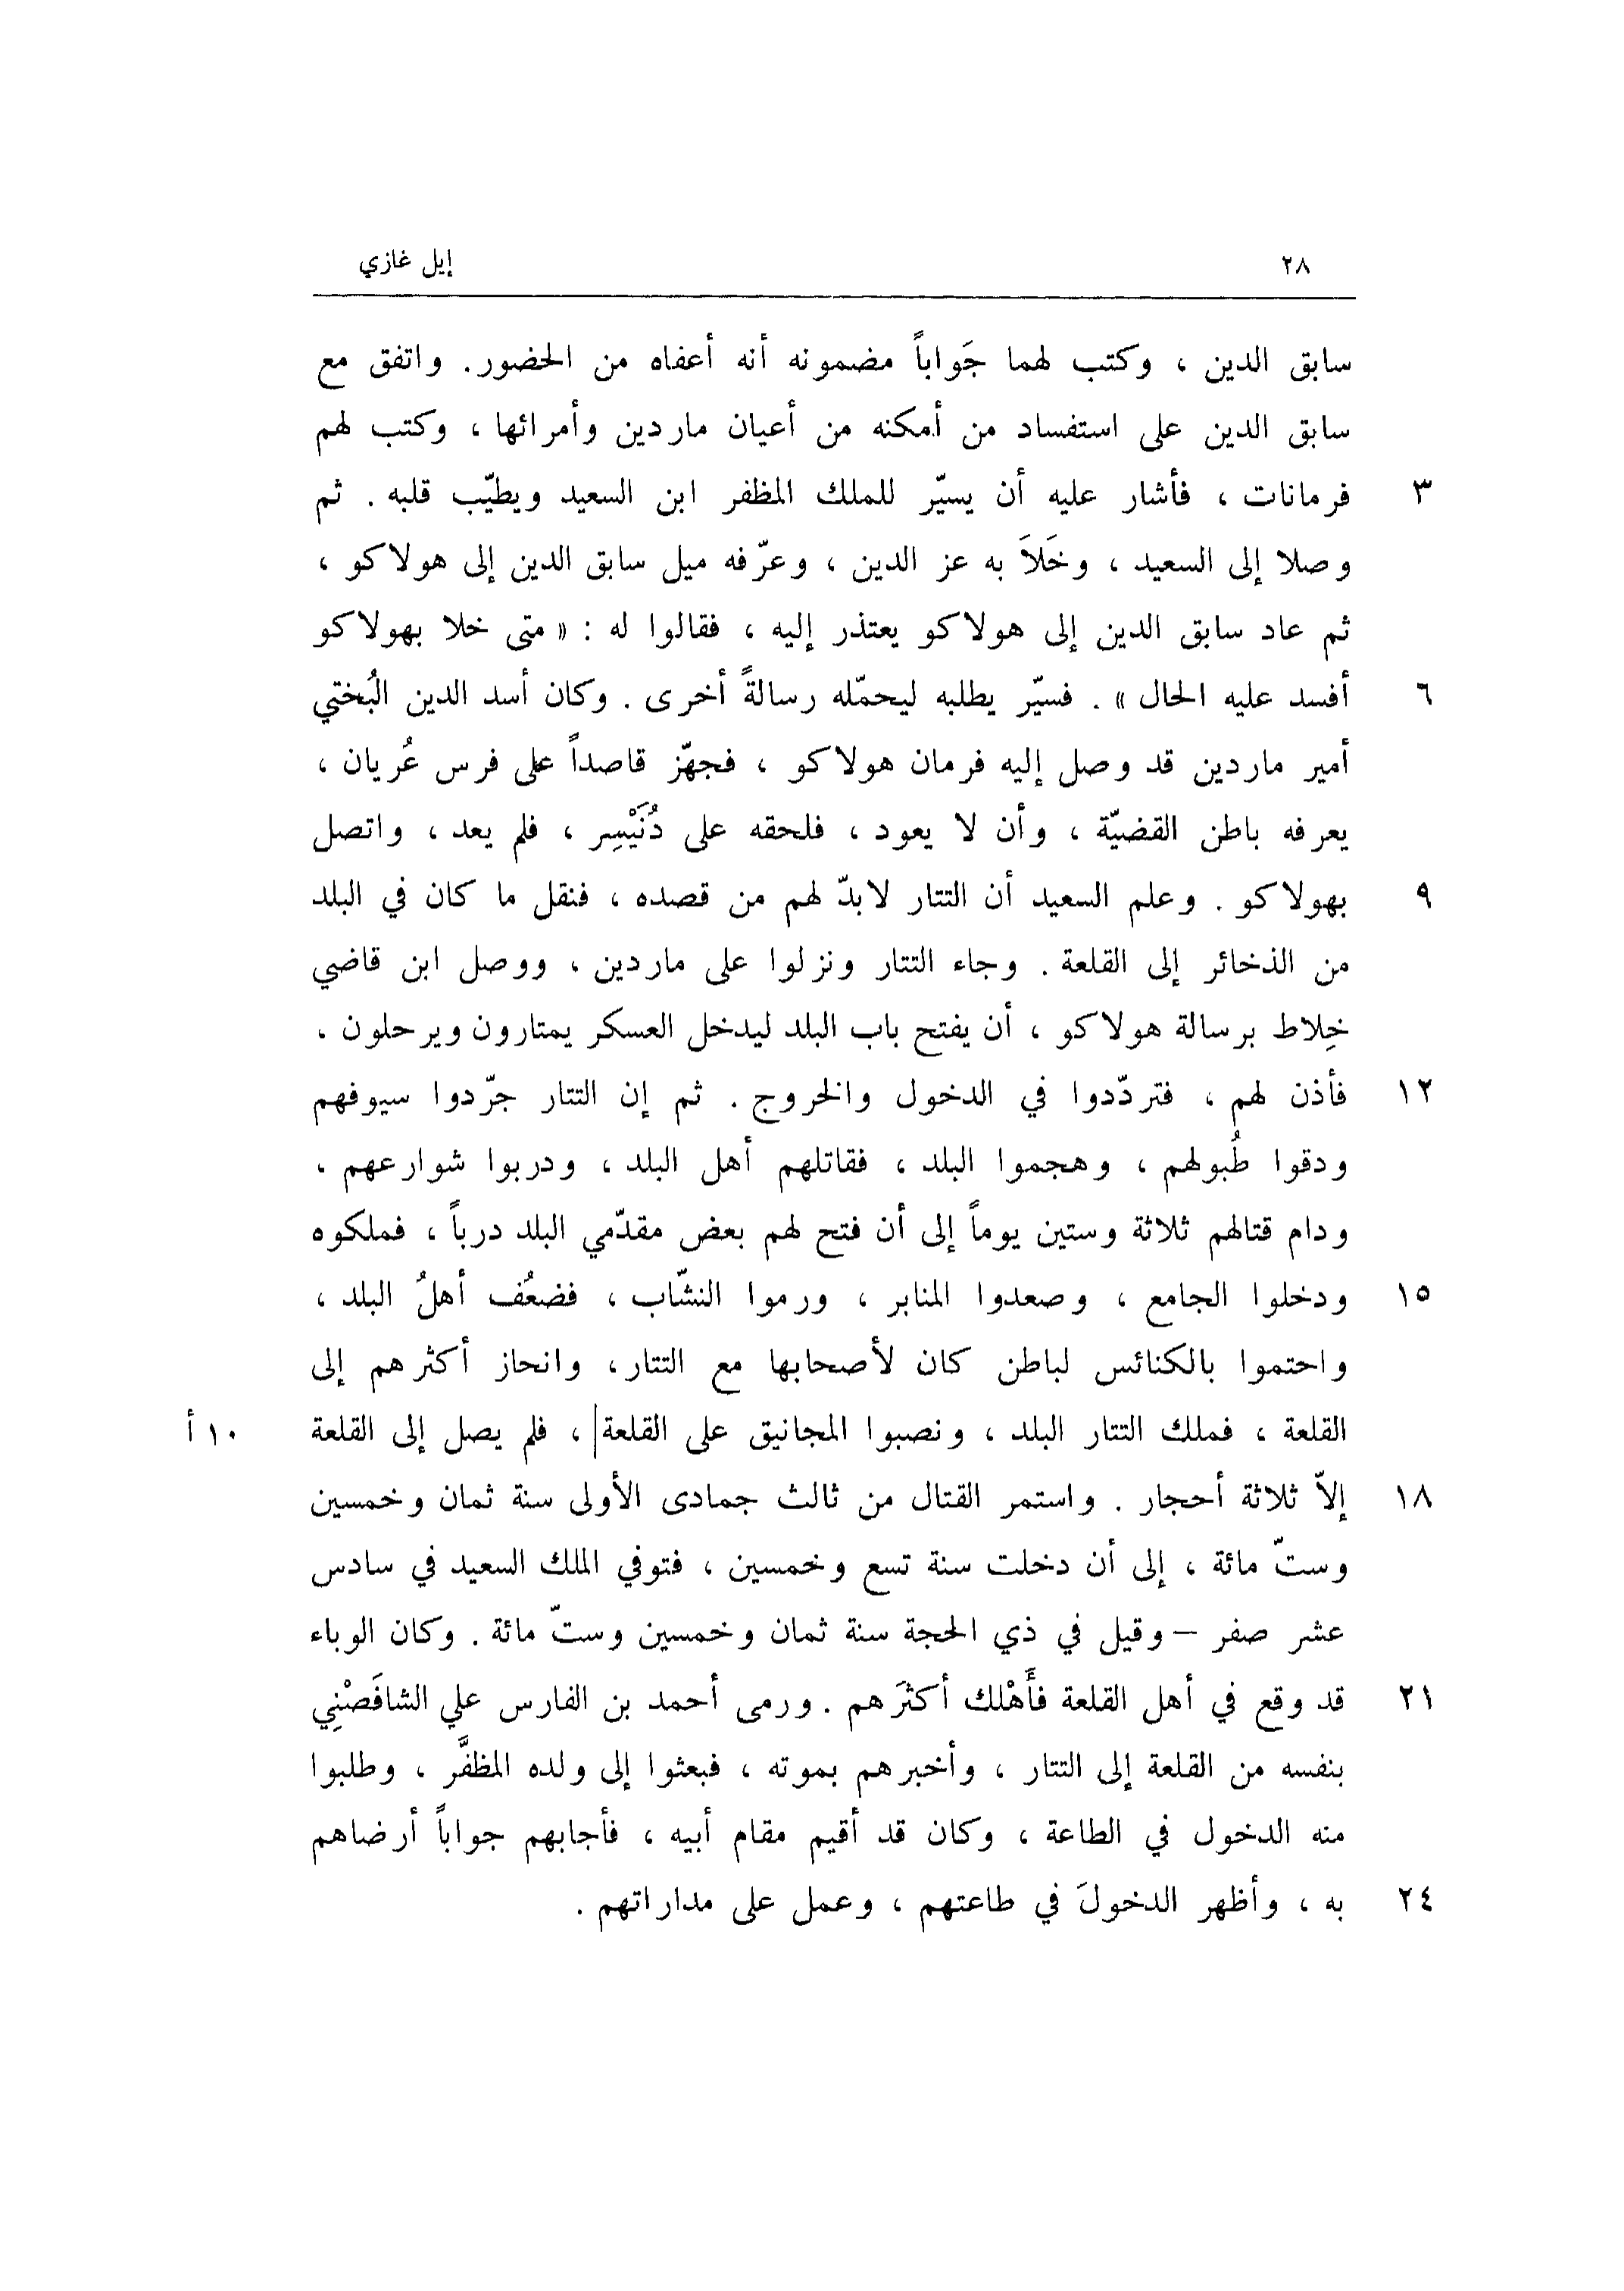 ٢٨ إيل غازي
سابق الدين ، وكتب لهما جَواباً مضمونه أنه أعفاه من الحضور. واتفق مع
سابق الدين على استفساد من أمكنه من أعيان ماردين وأمرائها ، وكتب لهم
٣ فرمانات ، فأشار عليه أن يسيّر للملك المظفر ابن السعيد ويطيّب قلبه . ثم
وصلا إلى السعيد ، وخَلاَ به عز الدين ، وعرّفه ميل سابق الدين إلى هولاكو ،
ثم عاد سابق الدين إلى هولاكو يعتذر إليه ، فقالوا له : « متى خلا بهولاكو
٦ أفسد عليه الحال » . فسيّر يطلبه ليحمّله رسالةً أخرى . وكان أسد الدين البُختي
أمير ماردين قد وصل إليه فرمان هولاكو ، فجهّز قاصداً على فرس عُريان ،
يعرفه باطن القضيّة ، وأن لا يعود ، فلحقه على دُنَيْسِر ، فلم يعد ، واتصل
٩ بهولاكو . وعلم السعيد أن التتار لابدّ لهم من قصده ، فنقل ما كان في البلد
من الذخائر إلى القلعة . وجاء التتار ونزلوا على ماردين ، ووصل ابن قاضي
خِلاط برسالة هولاكو ، أن يفتح باب البلد ليدخل العسكر يمتارون ويرحلون ،
١٢ فأذن لهم ، فتردّدوا في الدخول والخروج . ثم إن التتار جرّدوا سيوفهم
ودقوا طُبولهم ، وهجموا البلد ، فقاتلهم أهل البلد ، ودربوا شوارعهم ،
ودام قتالهم ثلاثة وستين يوماً إلى أن فتح لهم بعض مقدّمي البلد درباً ، فملكوه
١٥ ودخلوا الجامع ، وصعدوا المنابر ، ورموا النشّاب ، فضعُف أهلُ البلد ،
واحتموا بالكنائس لباطن كان لأصحابها مع التتار، وانحاز أكثرهم إلى
القلعة ، فملك التتار البلد ، ونصبوا المجانيق على القلعة| ، فلم يصل إلى القلعة ١٠ أ
١٨ إلاّ ثلاثة أحجار . واستمر القتال من ثالث جمادى الأولى سنة ثمان وخمسين
وستّ مائة ، إلى أن دخلت سنة تسع وخمسين ، فتوفي الملك السعيد في سادس
عشر صفر – وقيل في ذي الحجة سنة ثمان وخمسين وستّ مائة . وكان الوباء
٢١ قد وقع في أهل القلعة فأَهْلك أكثرَهم . ورمى أحمد بن الفارس علي الشافَصْنِي
بنفسه من القلعة إلى التتار ، وأخبرهم بموته ، فبعثوا إلى ولده المظفَّر ، وطلبوا
منه الدخول في الطاعة ، وكان قد أقيم مقام أبيه ، فأجابهم جواباً أرضاهم
٢٤ به ، وأظهر الدخولَ في طاعتهم ، وعمل على مداراتهم .